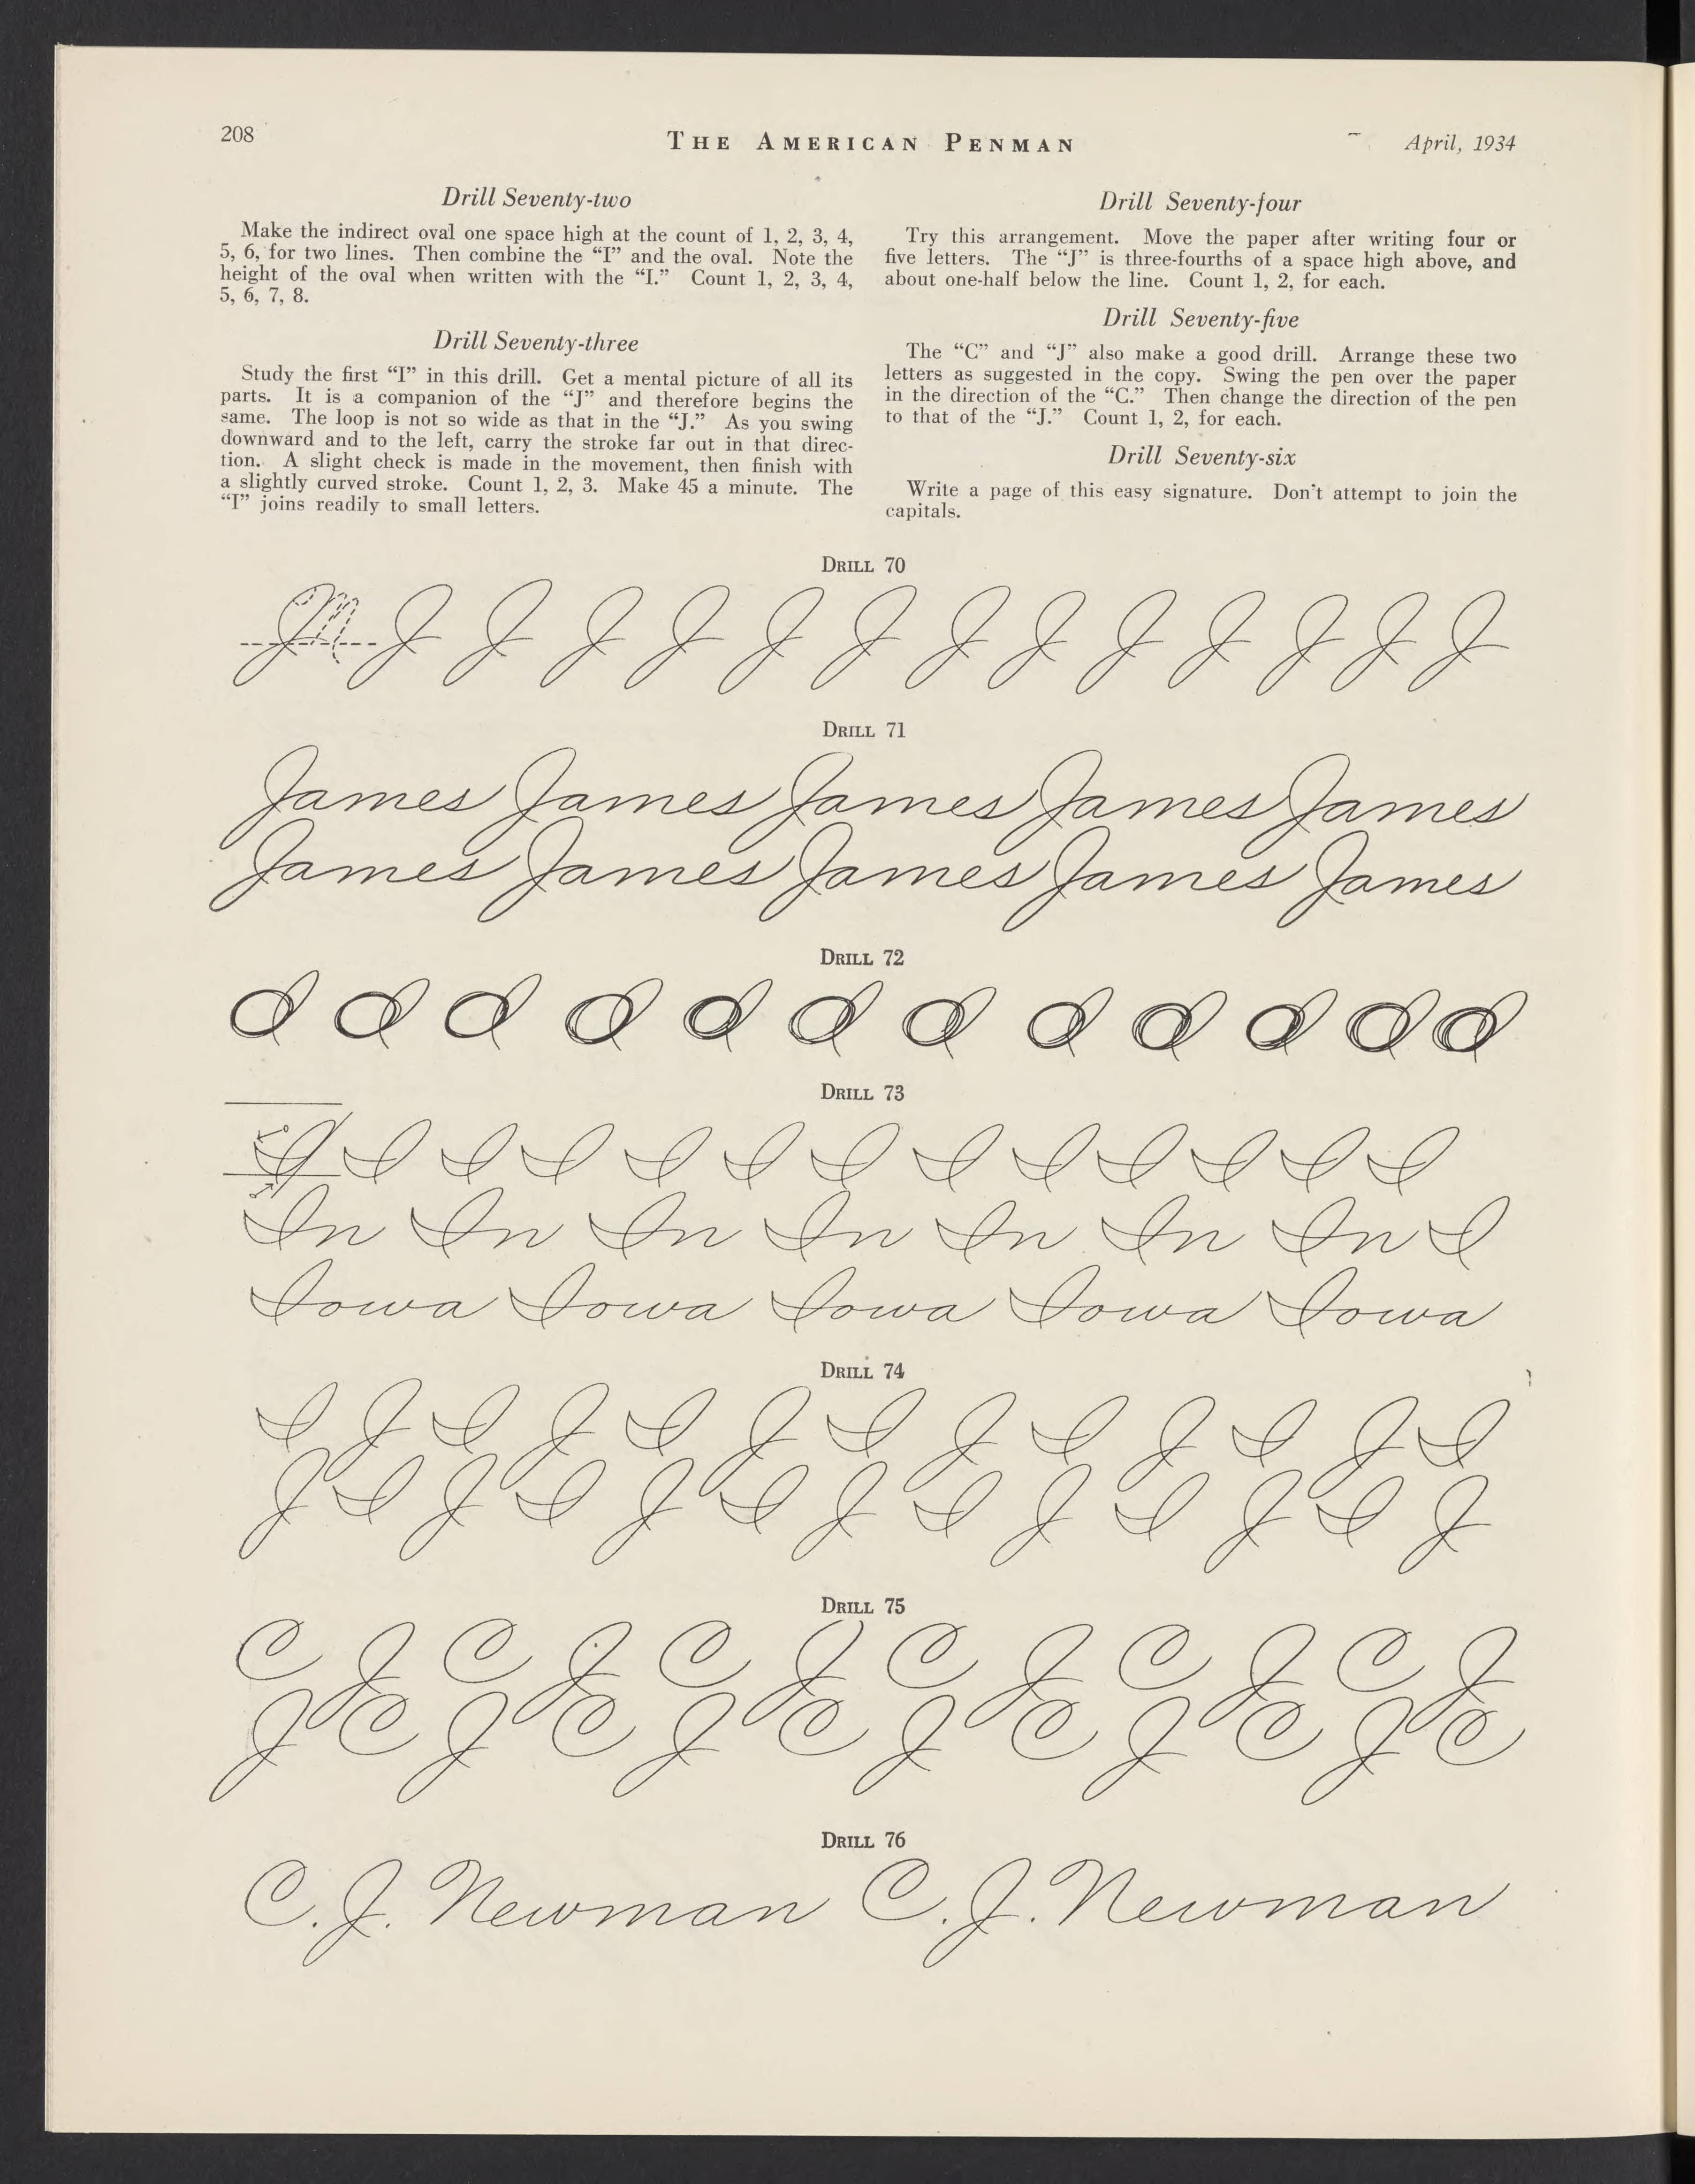 208
THE AMERICAN PENMAN
April, 1934
Drill Seventy-two
Make the indirect oval one space high at the count of 1, 2, 3, 4,
5, 6, for two lines. Then combine the “I” and the oval. Note the
height of the oval when written with the “I.” Count 1, 2, 3, 4,
5, 6, 7, 8.
Drill Seventy-three
Study the first “I” in this drill. Get a mental picture of all its
parts. It is a companion of the “J” and therefore begins the
same. The loop is not so wide as that in the “J.” As you swing
downward and to the left, carry the stroke far out in that direc-
tion. A slight check is made in the movement, then finish with
a slightly curved stroke. Count 1, 2, 3. Make 45 a minute. The
“I” joins readily to small letters.
Drill Seventy-four
Try this arrangement. Move the paper after writing four or
five letters. The “J” is three-fourths of a space high above, and
about one-half below the line. Count 1, 2, for each.
Drill Seventy-five
The “C” and “J” also make a good drill. Arrange these two
letters as suggested in the copy. Swing the pen over the paper
in the direction of the “C.” Then change the direction of the pen
to that of the “J.” Count 1, 2, for each.
Drill Seventy-six
Write a page of this easy signature. Don't attempt to join the
capitals.
DRILL 70
J J J J J J J J J J J J J J
DRILL 71
James James James James James
James James James James James
DRILL 72
DRILL 73
I I I I I I I I I I I I I
In In In In In In In I
Iowa Iowa Iowa Iowa Iowa
DRILL 74
I J I J I J I J I J I J I
J I J I J I J I J I J I J
DRILL 75
C J C J C J C J C J C J
J C J C J C J C J C J C
DRILL 76
C. J. Newman C. J. Newman